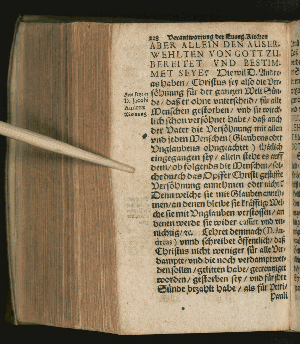 218 Verantwortung der Evang. Kirchen
ABER ALLEIN DEN AUSER-
WEHLTEN VON GOTT ZU-
BEREITET UND BESTIM-
MET SEYE? Die wil D. Andre-
as haben / Christus sey also die Ver-
söhnung für der gantzen Welt Sün-
de / daß er ohne unterscheid / für alle
Menschen gestorben / und sie würck-
lich schon versöhnet habe / daß auch
der Vater die Versöhnung mit allen
und jeden Menschen (Glaubens oder
Unglaubens ohngeachtet)
eingegangen sey / allein stehe es auff
dem / ob folgends die Menschen / sol-
che durch das Opffer Christi gestiffte
Versöhnung annehmen oder nicht?
Denn welche sie mit Glauben anneh-
men / an denen bleibe sie kräfftig: Wel-
che sie mit Unglauben verstossen / an
denen werde sie wider und ver-
nichtig / &c. Lehret demnach (D. An-
dreas) unnd schreibet öffentlich / daß
Christus nicht weniger für alle Ver-
dampte / und die noch verdampt wer-
den sollen / gelitten habe / gecreutziget
worden / gestorben sey / und für ihre
Sünde bezahlt habe / als für Petri /
Pauli
D. Jacobi
Andreae
Meinung